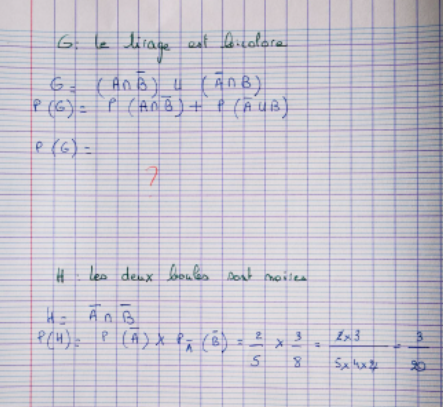 G: le tirage est bicolore
G = (A∩B̅) ∪ (A̅∩B)
P(G) = P(A∩B̅) + P(A̅∪B)
P(G) =
?
H : les deux boules sont noires
H = A̅ ∩ B̅
P(H) = P(A̅) × P_A̅(B̅) = 2/5 × 3/8 = 2×3/5×4×2 = 3/20